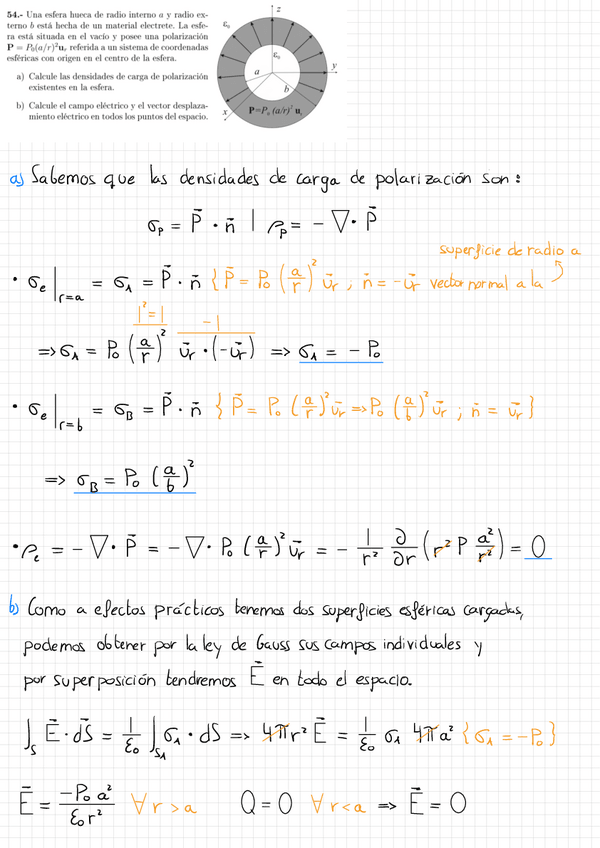 54.- Una esfera hueca de radio interno a y radio ex-
terno b está hecha de un material electrete. La esfe-
ra está situada en el vacío y posee una polarización
P = P₀(a/r)²uᵣ, referida a un sistema de coordenadas
esféricas con origen en el centro de la esfera.
a) Calcule las densidades de carga de polarización
existentes en la esfera.
b) Calcule el campo eléctrico y el vector desplaza-
miento eléctrico en todos los puntos del espacio.
z
ε₀
ε₀
a
y
b
x
P=P₀ (a/r)² uᵣ
a) Sabemos que las densidades de carga de polarización son:
σₚ = P̄ · n̄ | ρₚ = - ∇· P̄
superficie de radio a
• σₑ|r=a = σ₁ = P̄ · n̄ { P̄ = P₀ (a/r)² ūᵣ ; n̄ = -ūᵣ vector normal a la
1² = 1 -1
=> σ₁ = P₀ (a/r)² ūᵣ · (-ūᵣ) => σ₁ = - P₀
• σₑ|r=b = σB = P̄ · n̄ { P̄ = P₀ (a/r)² ūᵣ => P₀ (a/b)² ūᵣ ; n̄ = ūᵣ }
=> σB = P₀ (a/b)²
• ρₑ = - ∇· P̄ = - ∇· P₀ (a/r)² ūᵣ = - 1/r² ∂/∂r (r² P a²/r²) = 0
b) Como a efectos prácticos tenemos dos superficies esféricas cargadas,
podemos obtener por la ley de Gauss sus campos individuales y
por superposición tendremos Ē en todo el espacio.
∫S Ē · dS̄ = 1/ε₀ ∫S₁ σ₁ · dS => 4πr² Ē = 1/ε₀ σ₁ 4π a² { σ₁ = -P₀ }
Ē = -P₀ a²/ε₀ r² ∀ r > a Q = 0 ∀ r < a => Ē = 0